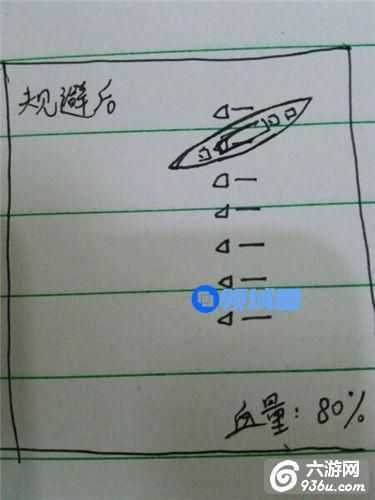 规避后
血量：80%
六游网
936u.com